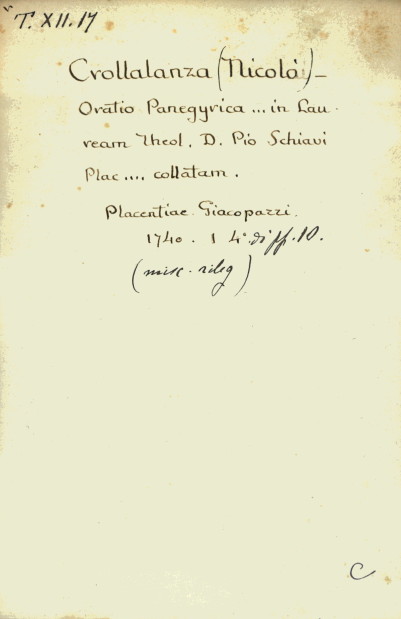 T. XII. 17
Crollalanza (Nicolò) –
Oratio Panegyrica ... in Lau-
ream Theol. D. Pio Schiavi
Plac .... collatam.
Placentiae Giacopazzi.
1740. 1 4° di ff. 10.
(misc. rileg)
C